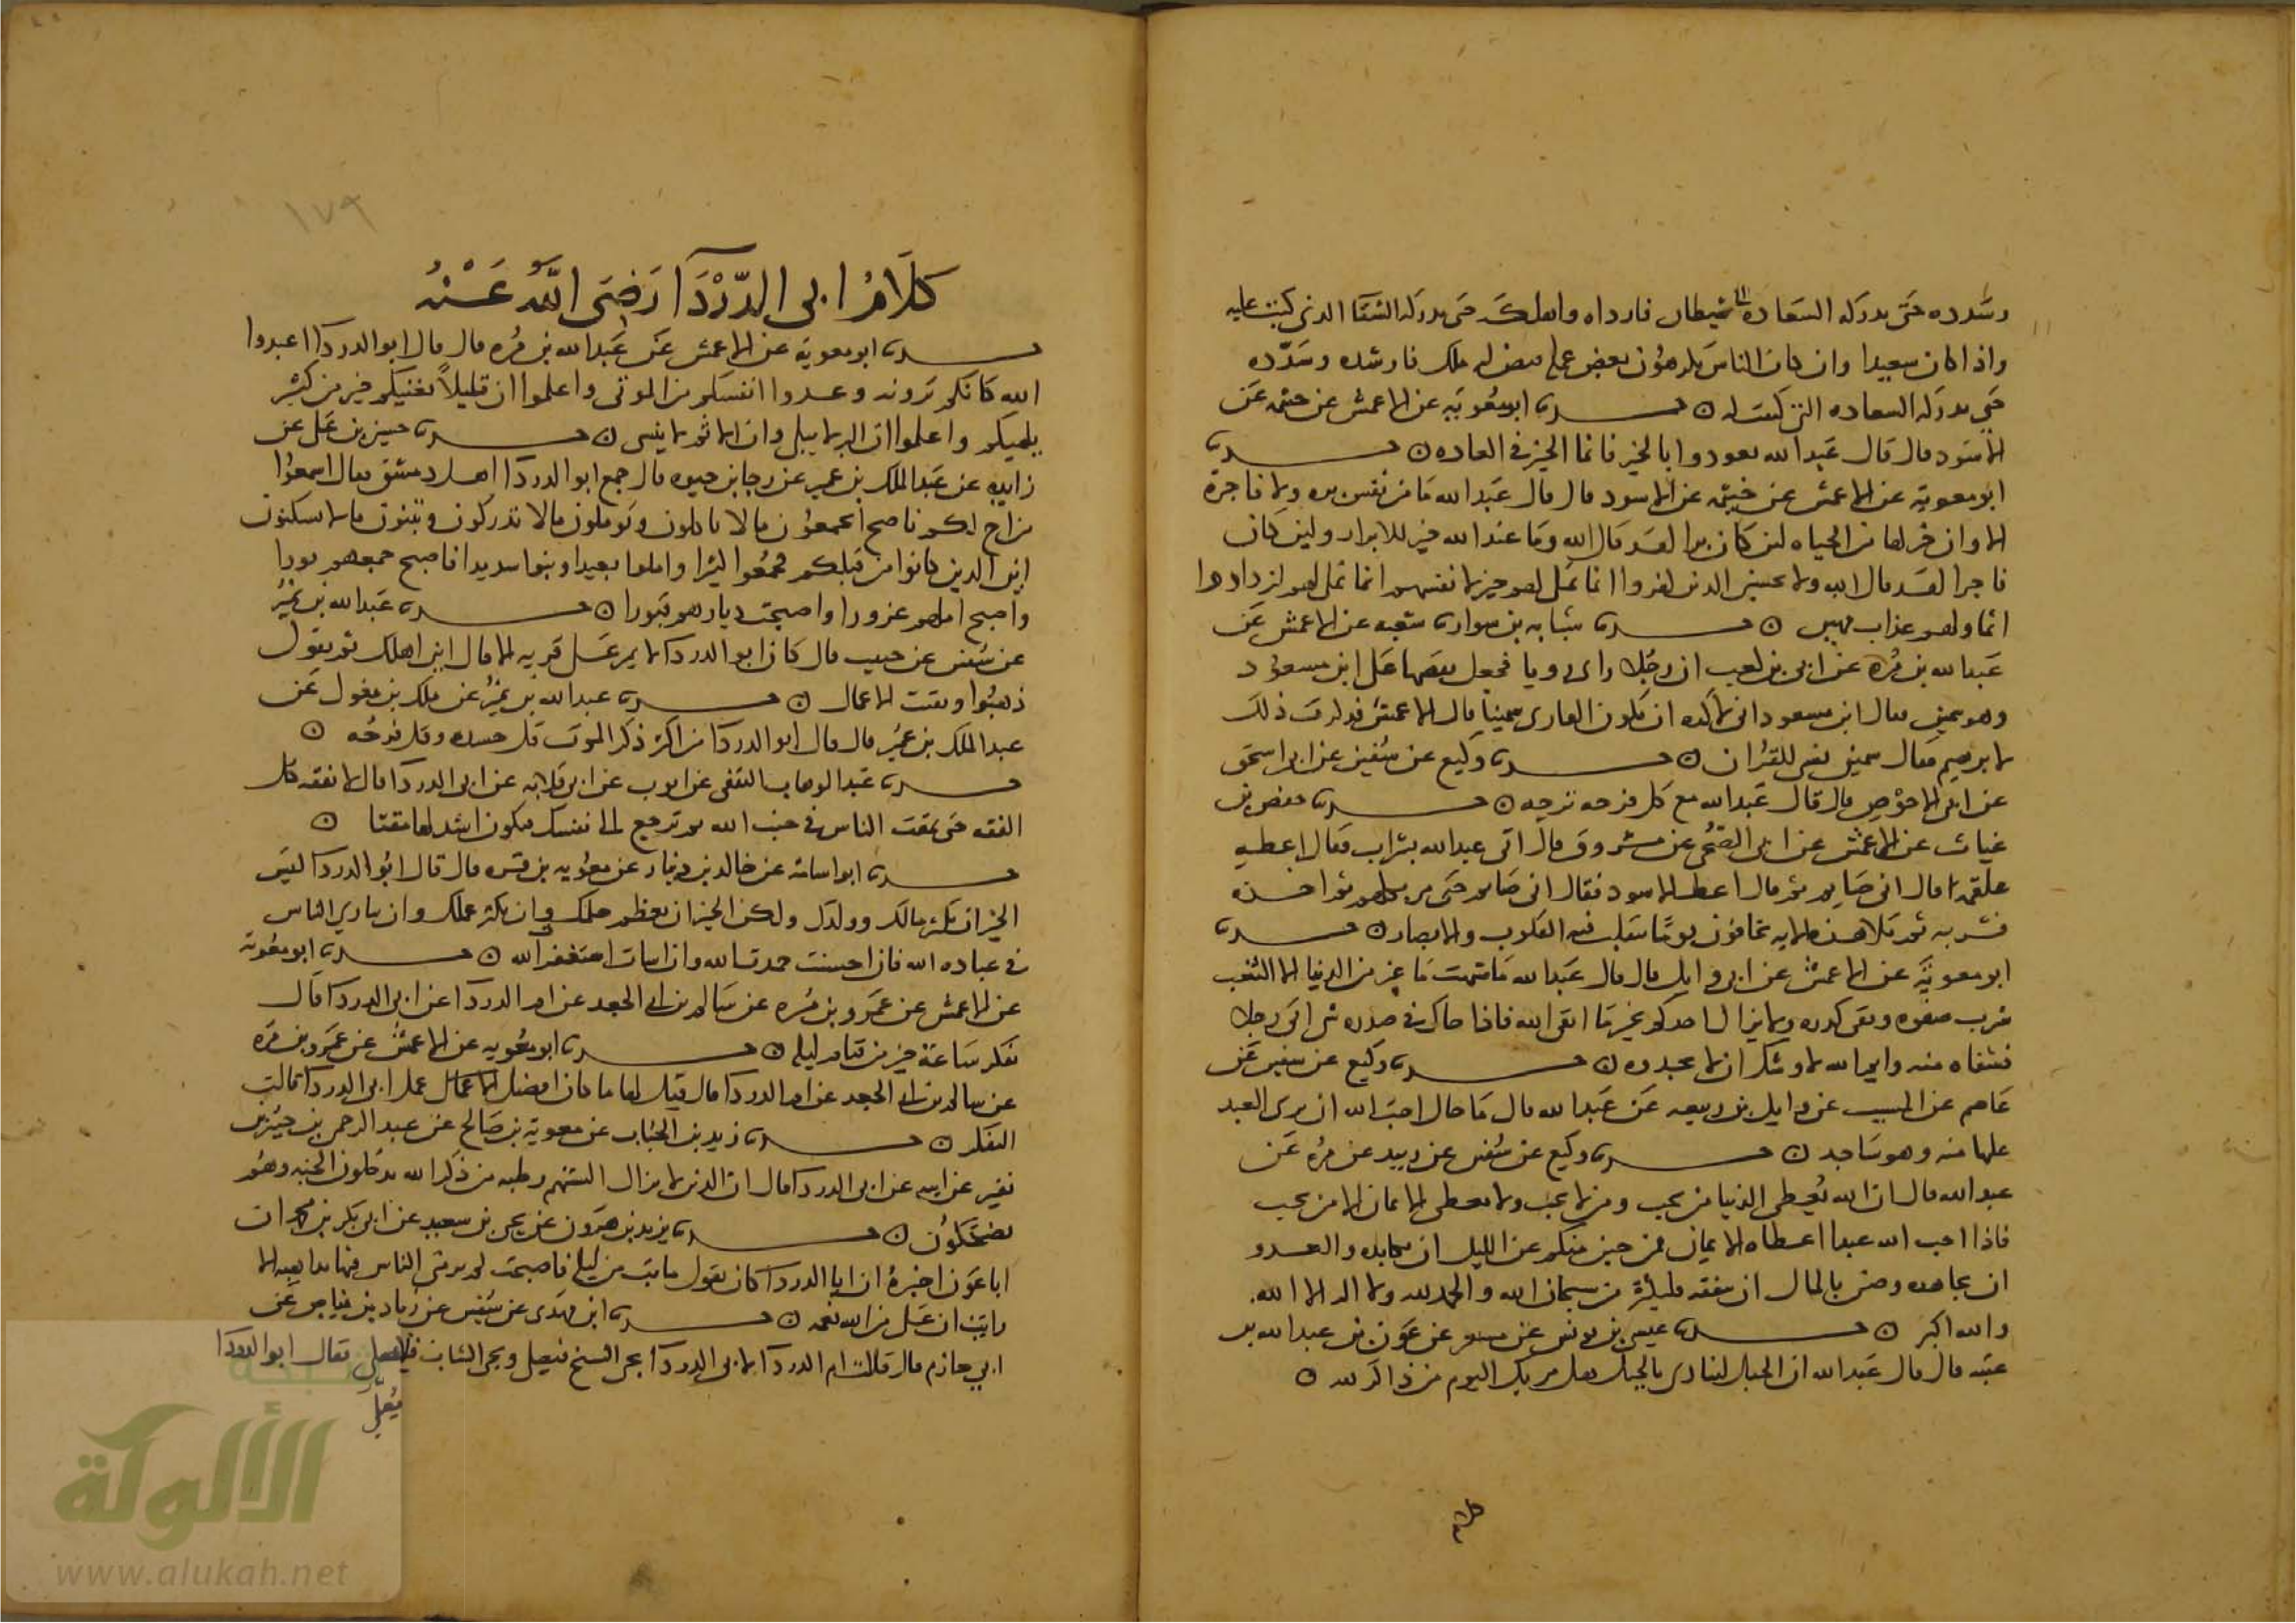 وسدده حتى يدركه السعاده الشيطان فارداه واهلكه حتى يدركه الشقا الذي كتبت عليه
واذا كان سعيدا وان كان الناس يكرهون بعض عمله قيض له ملك فارشده وسدده
حتى يدركه السعاده التي كتبت له ۝ حدثنا ابو معوية عن الاعمش عن خيثمه عن
الاسود قال قال عبد الله تعودوا بالخير فانما الخير في العاده ۝ حدثنا
ابو معوية عن الاعمش عن خيثمه عن الاسود قال قال عبد الله ما من نفس بره ولا فاجرة
الا وان خير لها من الحياه لئن كان برا لقد قال الله وما عند الله خير للابرار ولئن كان
فاجرا لقد قال الله ولا يحسبن الذين كفروا انما نملي لهم خير لانفسهم انما نملي لهم ليزدادوا
اثما ولهم عذاب مهين ۝ حدثنا شبابه بن سوار ثنا شعبه عن الاعمش عن
عبد الله بن مره عن ابي بن كعب ان رجلا راى رويا فجعل يقصها على ابن مسعود
وهو سمين فقال ابن مسعود اني لاكره ان يكون القارى سمينا قال الاعمش فذكرت ذلك
لابرهيم فقال سمين نسي للقران ۝ حدثنا وكيع عن سفين عن ابي اسحق
عن ابي الاحوص قال قال عبد الله مع كل فرحه ترحه ۝ حدثنا حفص بن
غياث عن الاعمش عن ابي الضحى عن مسروق قال اتى عبد الله بشراب فقال اعطه
علقمه قال اني صايم ثم قال اعط الاسود فقال اني صايم حتى مر بكلهم ثم اخذه
فشربه ثم تلا هذه الايه يخافون يوما تتقلب فيه القلوب والابصار ۝ حدثنا
ابو معوية عن الاعمش عن ابي وايل قال قال عبد الله ما شبهت ما غبر من الدنيا الا الثغب
شرب صفوه وبقي كدره ولا يزال احدكم بخير ما اتقى الله فاذا حاك في صدره شي اتى رجلا
فشفاه منه وايم الله لاوشك ان لا تجدوه ۝ حدثنا وكيع عن سفين عن
عاصم عن المسيب عن وايل بن ربيعه عن عبد الله قال ما حال احب الى الله ان يرى العبد
عليها منه وهو ساجد ۝ حدثنا وكيع عن سفين عن زبيد عن مره عن
عبد الله قال ان الله يعطي الدنيا من يحب ومن لا يحب ولا يعطي الايمان الا من يحب
فاذا احب الله عبدا اعطاه الايمان فمن جبن منكم عن الليل ان يكابده والعدو
ان يجاهده وضن بالمال ان ينفقه فليكثر من سبحان الله والحمد لله ولا اله الا الله
والله اكبر ۝ حدثنا عيسى بن يونس عن مسعر عن عون بن عبد الله بن
عتبه قال قال عبد الله ان الجبل لينادي بالجبل هل مر بك اليوم من ذاكر لله ۝
كلام
١٧٩
كلام ابي الدردا رضي الله عنه
حدثنا ابو معوية عن الاعمش عن عبد الله بن مره قال قال ابو الدردا اعبدوا
الله كانكم ترونه وعدوا انفسكم من الموتى واعلموا ان قليلا يغنيكم خير من كثير
يلهيكم واعلموا ان البر لا يبلى وان الاثم لا ينسى ۝ حدثنا حسين بن علي عن
زايدة عن عبد الملك بن عمير عن رجا بن حيوه قال جمع ابو الدردا اهل دمشق فقال اسمعوا
من اخ لكم ناصح اتجمعون مالا تاكلون وتوملون مالا تدركون وتبنون مالا تسكنون
اين الذين كانوا من قبلكم فجمعوا كثيرا واملوا بعيدا وبنوا شديدا فاصبح جمعهم بورا
واصبح املهم غرورا واصبحت ديارهم قبورا ۝ حدثنا عبد الله بن نمير
عن سفين عن حبيب قال كان ابو الدردا لا يمر على قريه الا قال اين اهلك ثم يقول
ذهبوا وبقيت الاعمال ۝ حدثنا عبد الله بن نمير عن ملك بن مغول عن
عبد الملك بن عمير قال قال ابو الدردا من اكثر ذكر الموت قل حسده وقل فرحه ۝
حدثنا عبد الوهاب الثقفي عن ايوب عن ابي قلابه عن ابي الدردا قال لا تفقه كل
الفقه حتى تمقت الناس في جنب الله ثم ترجع الى نفسك فتكون اشد لها مقتا ۝
حدثنا ابو اسامه عن خالد بن دينار عن معويه بن قره قال قال ابو الدردا ليس
الخير ان يكثر مالك وولدك ولكن الخير ان يعظم حلمك وان يكثر عملك وان تباري الناس
في عباده الله فان احسنت حمدت الله وان اسات استغفر الله ۝ حدثنا ابو معوية
عن الاعمش عن عمرو بن مره عن سالم بن ابي الجعد عن ام الدردا عن ابي الدردا قال
تفكر ساعة خير من قيام ليله ۝ حدثنا ابو معويه عن الاعمش عن عمرو بن مره
عن سالم بن ابي الجعد عن ام الدردا قال قيل لها ما كان افضل الاعمال عمل ابي الدردا قالت
التفكر ۝ حدثنا زيد بن الحباب عن معوية بن صالح عن عبد الرحمن بن جبير بن
نفير عن ابيه عن ابي الدردا قال ان الذين لا يزال السنتهم رطبه من ذكر الله يدخلون الجنه وهم
يضحكون ۝ حدثنا يزيد بن هرون عن يحيى بن سعيد عن ابي بكر بن محمد ان
ابا عون اخبره ان ابا الدردا كان يقول ما بت من ليلة فاصبحت لم يرمني الناس فيها بداهيه الا
رايت ان علي من الله نعمه ۝ حدثنا ابن مهدي عن سفين عن زياد بن فياض عن
ابي حازم قال قالت ام الدردا لابي الدردا يجي الشيخ فيصلي ويجي الشاب فلا يصلي فقال ابو الدردا
الألوكة
www.alukah.net